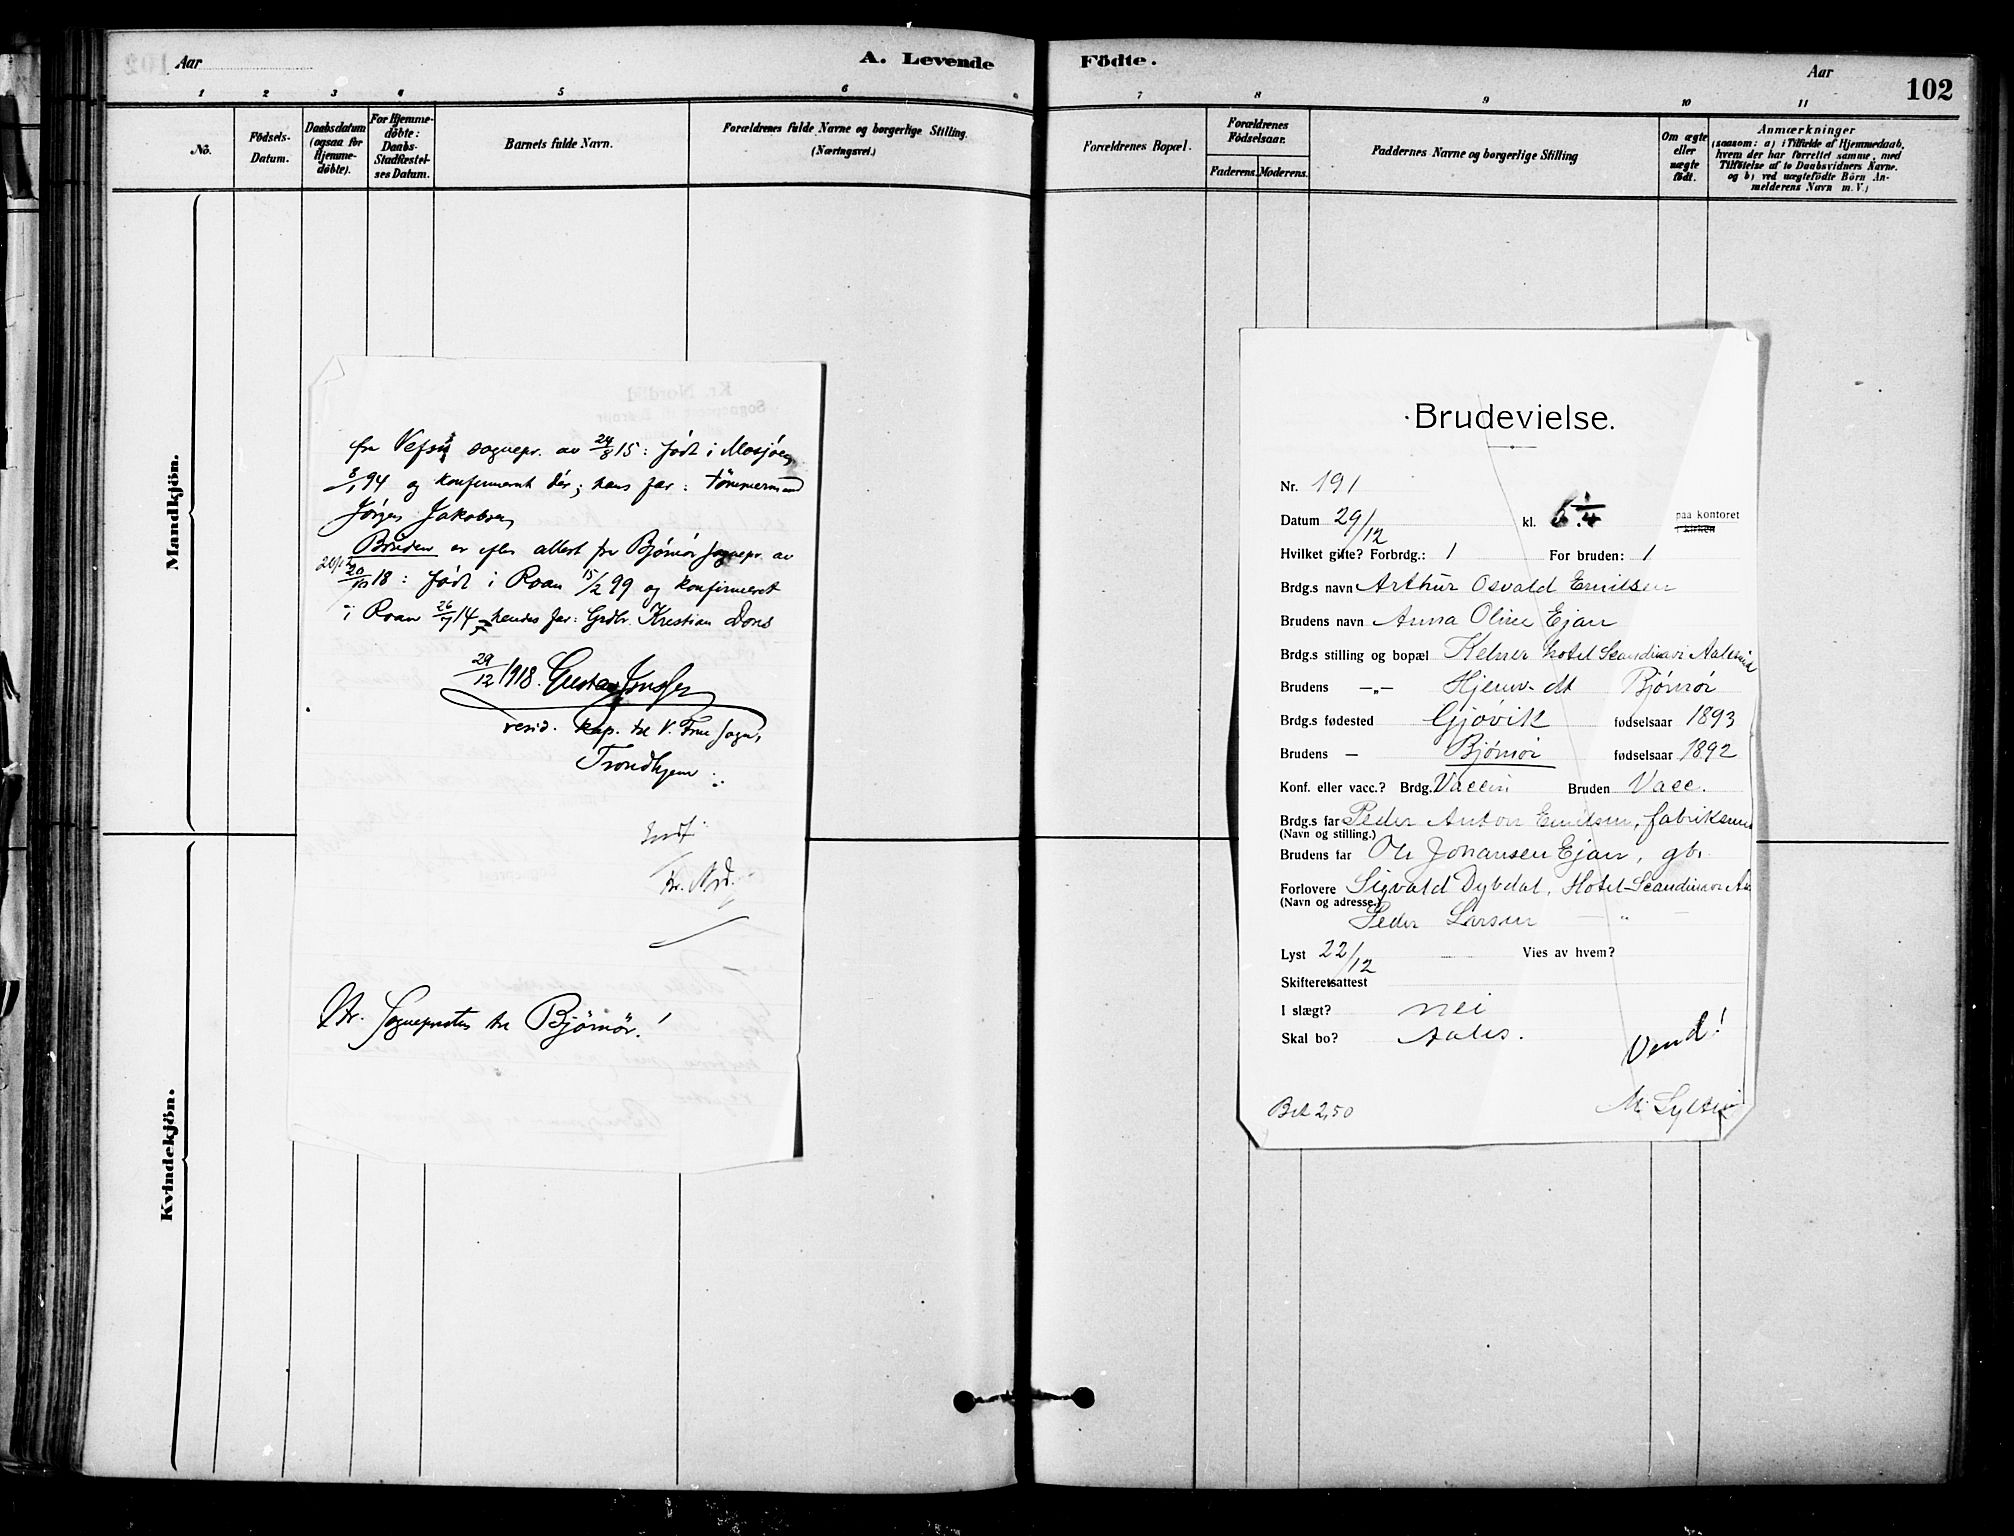 Aar
A. Levende
1
2
3
4
5
6
No.
Födsels-
Datum.
Daabsdatum
(ogsaa for
Hjemme-
døbte).
For Hjemme-
døbte:
Daabs-
Stadfæstel-
ses Datum.
Barnets fulde Navn.
Forældrenes fulde Navne og borgerlige Stilling.
(Næringsvei.)
Mandkjön.
Kvindekjön.
fra Vefsn sognepr. av 24/8 15: født i Mosjøen
8/1 94 og konfirmeret dér; hans far: tömmermand
Jørgen Jakobsen
Bruden er efter attest fra Bjørnør sognepr. av
20/12 18: født i Roan 15/2 99 og konfirmeret
i Roan 26/7 14, hendes far: Grdbr. Kristian Dons
29/12 1918. Gustav
resid. kap. til V. Frue Sogn,
Trondhjem
Indf.
Kr. Nrd.
Hr. Sogneprsten til Bjørnør!
Födte.
Aar
102
7
8
9
10
11
Forældrenes Bopæl.
Forældrenes
Födselsaar.
Faderens.
Moderens.
Faddernes Navne og borgerlige Stilling
Om ægte
eller
uægte
födt.
Anmærkninger
(saasom: a) i Tilfælde af Hjemmedaab,
hvem der har forrettet samme, med
Tilföielse af to Daabsvidners Navne.
og b) ved uægtefödte Börn An-
melderens Navn m. V.)
Brudevielse.
Nr. 191
Datum 29/12 kl. paa kontoret
kirken
Hvilket gifte? Forbrdg.: 1 For bruden: 1
Brdg.s navn Arthur Osvald Emilsen
Brudens navn Anna Oline Ejan
Brdg.s stilling og bopæl Kelner hotel Scandinavi Aalesund
Brudens —„— Hjemv. dt Bjørnør
Brdg.s fødested Gjøvik fødselsaar 1893
Brudens — Bjørnør fødselsaar 1892
Konf. eller vacc.? Brdg. Vaccin Bruden Vacc.
Brdg.s far Peder Anton Emilsen, fabriksm
(Navn og stilling.)
Brudens far Ole Johansen Ejan, gbr.
Forlovere Sigvald Dybdal, Hotel Scandinavi Aa
(Navn og adresse.)
Peder Larsen — „ —
Lyst 22/12 Vies av hvem?
Skifteretsattest
I slægt? nei
Skal bo? Aales.
Vend!
Bet 2,50